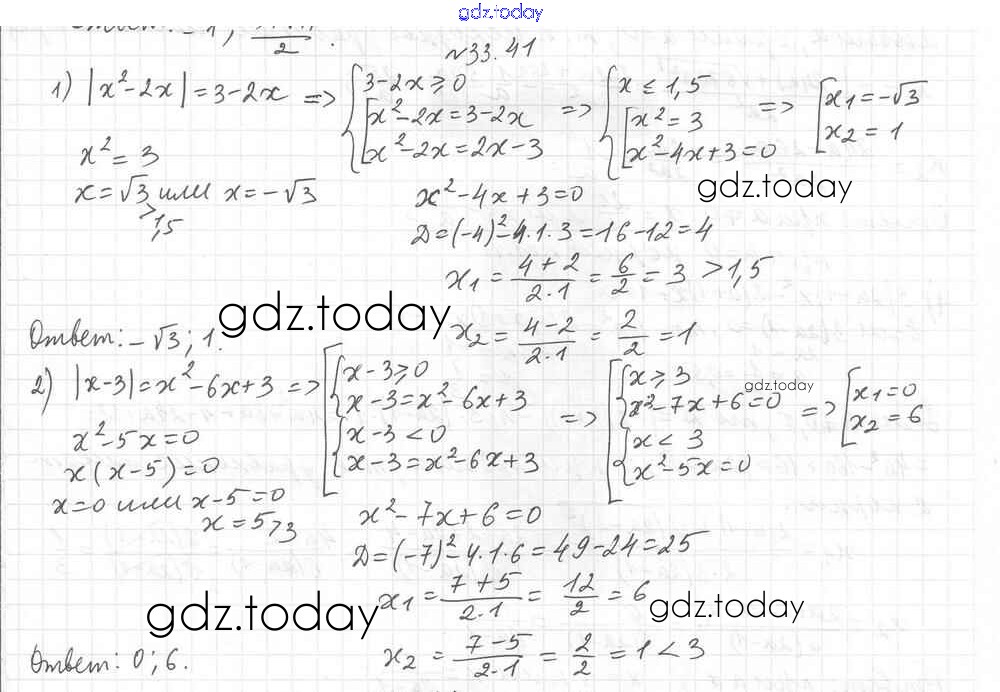 gdz.today
Ответ: -1;
2
№33.41
1) |x²-2x|=3-2x => { 3-2x≥0 [ x²-2x=3-2x x²-2x=2x-3 => { x≤1,5 [ x²=3 x²-4x+3=0 => [ x1=-√3 x2=1
x²=3
gdz.today
x=√3 или x=-√3
>1,5
x²-4x+3=0
D=(-4)²-4·1·3=16-12=4
x1=(4+2)/(2·1)=6/2=3>1,5
gdz.today
x2=(4-2)/(2·1)=2/2=1
Ответ: -√3; 1.
2) |x-3|=x²-6x+3 => [ { x-3≥0 x-3=x²-6x+3 { x-3<0 x-3=x²-6x+3 => [ { x≥3 x²-7x+6=0 { x<3 x²-5x=0 => [ x1=0 x2=6
gdz.today
x²-5x=0
x(x-5)=0
x=0 или x-5=0
x=5>3
x²-7x+6=0
D=(-7)²-4·1·6=49-24=25
x1=(7+5)/(2·1)=12/2=6
gdz.today
gdz.today
x2=(7-5)/(2·1)=2/2=1<3
Ответ: 0; 6.